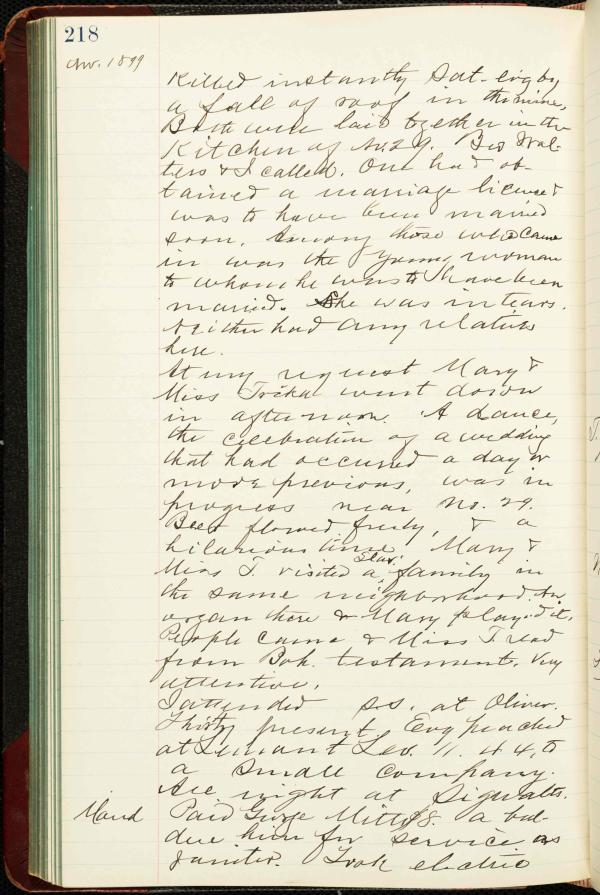 218
1899
Killed instantly Sat. evg by
a fall of roof in the mine.
Both were laid together in the
Kitchen of No. 29. Bro Wal-
ters & I called. One had ob-
tained a marriage license &
was to have been married
soon. Among those who came
in was the young woman
to whom he was to have been
married. She was in tears.
Neither had any relatives
here.
At my request Mary &
Miss Točka went down
in afternoon. A dance,
the celebration of a wedding
that had occured a day or
more previous, was in
progress near No. 29.
Beer flowed freely, & a
hilarious time. Mary &
Miss T. visited a Slav. family in
the same neighborhood. An
organ there & Mary played it.
People came & Miss T. read
from Boh. testament. Very
attentive.
I attended S.S. at Oliver.
Thirty present. Evg preached
at Lemont Lev. 11. 44, to
a small company.
All night at Sigwalts.
Paid George $8. a bal-
due him for service as
janitor. Took electric